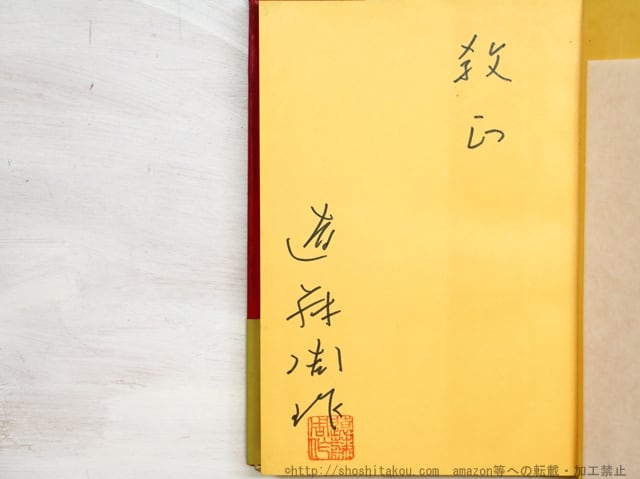 教正
遠藤周作
©http://shoshitakou.com amazon等への転載・加工禁止